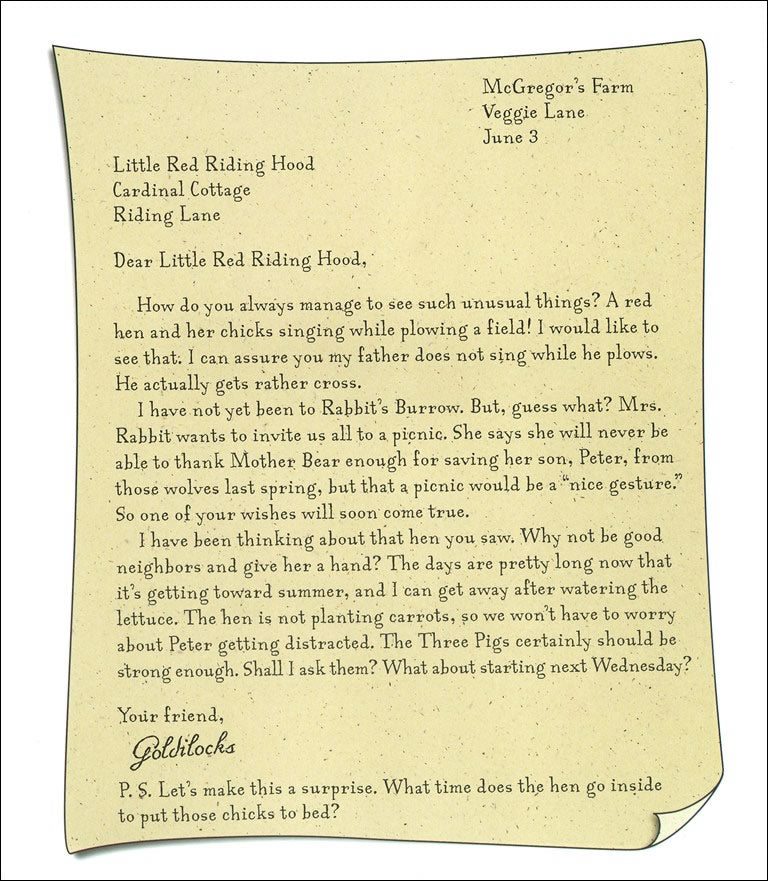 McGregor's Farm
Veggie Lane
June 3
Little Red Riding Hood
Cardinal Cottage
Riding Lane
Dear Little Red Riding Hood,
How do you always manage to see such unusual things? A red
hen and her chicks singing while plowing a field! I would like to
see that. I can assure you my father does not sing while he plows.
He actually gets rather cross.
I have not yet been to Rabbit's Burrow. But, guess what? Mrs.
Rabbit wants to invite us all to a picnic. She says she will never be
able to thank Mother Bear enough for saving her son, Peter, from
those wolves last spring, but that a picnic would be a “nice gesture.”
So one of your wishes will soon come true.
I have been thinking about that hen you saw. Why not be good
neighbors and give her a hand? The days are pretty long now that
it's getting toward summer, and I can get away after watering the
lettuce. The hen is not planting carrots, so we won't have to worry
about Peter getting distracted. The Three Pigs certainly should be
strong enough. Shall I ask them? What about starting next Wednesday?
Your friend,
Goldilocks
P. S. Let's make this a surprise. What time does the hen go inside
to put those chicks to bed?